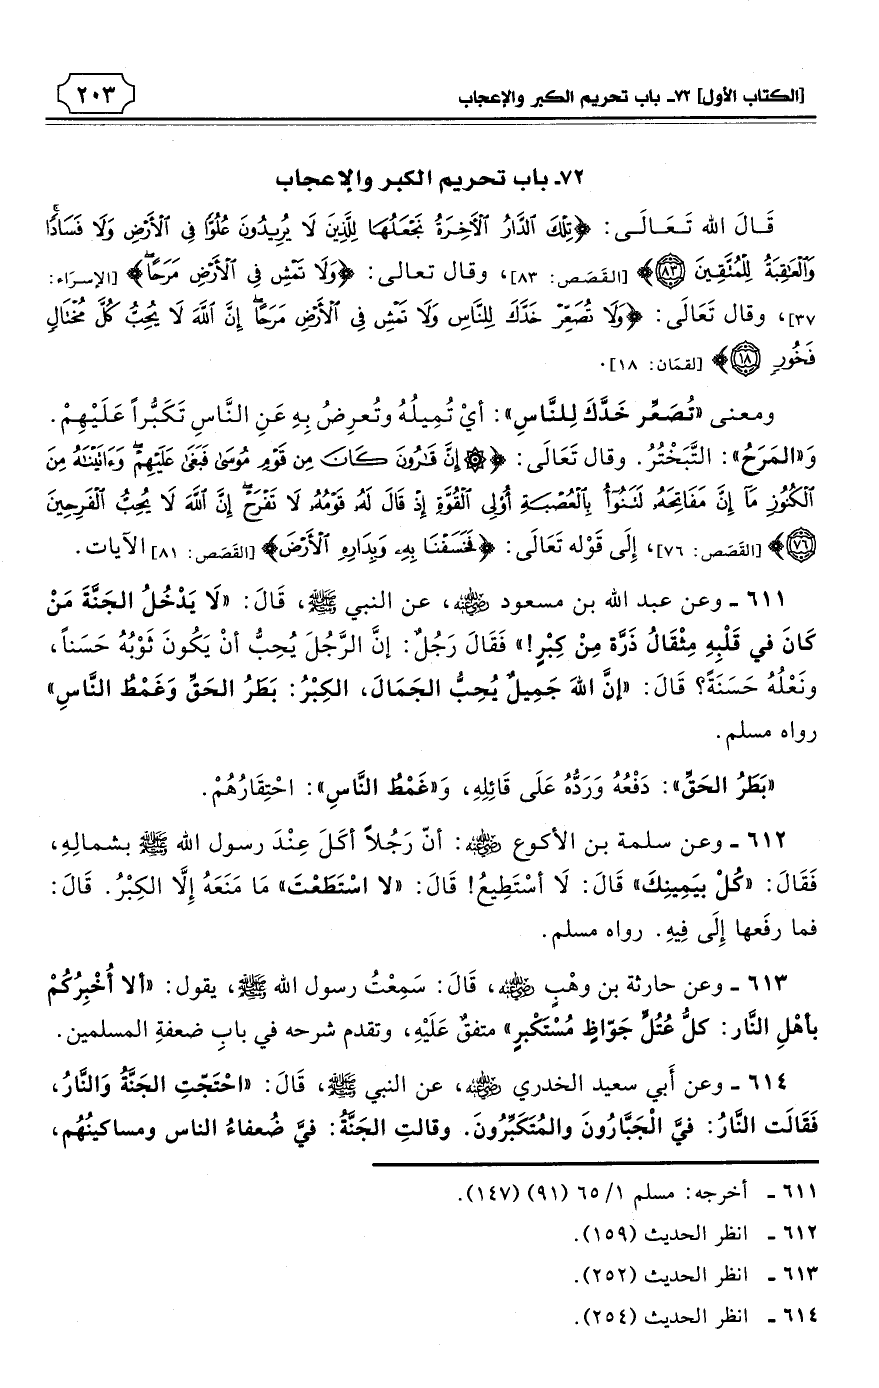 [الكتاب الأول] ٧٢ـ باب تحريم الكبر والإعجاب
٢٠٣
٧٢ـ باب تحريم الكبر والإعجاب
قَالَ الله تَعَالَى: ﴿تِلْكَ الدَّارُ الْآخِرَةُ نَجْعَلُهَا لِلَّذِينَ لَا يُرِيدُونَ عُلُوًّا فِي الْأَرْضِ وَلَا فَسَادًا
وَالْعَاقِبَةُ لِلْمُتَّقِينَ ٨٣﴾ [القَصَص: ٨٣]، وقال تعالى: ﴿وَلَا تَمْشِ فِي الْأَرْضِ مَرَحًا﴾ [الإسرَاء:
٣٧]، وقال تَعَالَى: ﴿وَلَا تُصَعِّرْ خَدَّكَ لِلنَّاسِ وَلَا تَمْشِ فِي الْأَرْضِ مَرَحًا إِنَّ اللَّهَ لَا يُحِبُّ كُلَّ مُخْتَالٍ
فَخُورٍ ١٨﴾ [لقمَان: ١٨].
ومعنى «تُصَعِّر خَدَّكَ لِلنَّاسِ»: أيْ تُمِيلُهُ وتُعرِضُ بِهِ عَنِ النَّاسِ تَكَبُّراً عَلَيْهِمْ.
وَ«المَرَحُ»: التَّبَخْتُرُ. وقال تَعَالَى: ﴿۞ إِنَّ قَارُونَ كَانَ مِن قَوْمِ مُوسَىٰ فَبَغَىٰ عَلَيْهِمْ وَءَاتَيْنَاهُ مِنَ
الْكُنُوزِ مَآ إِنَّ مَفَاتِحَهُ لَتَنُوٓأُ بِالْعُصْبَةِ أُوْلِي الْقُوَّةِ إِذْ قَالَ لَهُ قَوْمُهُ لَا تَفْرَحْ إِنَّ اللَّهَ لَا يُحِبُّ الْفَرِحِينَ
٧٦﴾ [القَصَص: ٧٦]، إِلَى قَوْله تَعَالَى: ﴿فَخَسَفْنَا بِهِ وَبِدَارِهِ الْأَرْضَ﴾ [القَصَص: ٨١] الآيات.
٦١١ ـ وعن عبد الله بن مسعود رضي الله عنه، عن النبي ﷺ، قَالَ: «لَا يَدْخُلُ الجَنَّةَ مَنْ
كَانَ في قَلْبِهِ مِثْقَالُ ذَرَّة مِنْ كِبْرٍ!» فَقَالَ رَجُلٌ: إنَّ الرَّجُلَ يُحِبُّ أنْ يَكُونَ ثَوْبُهُ حَسَناً،
ونَعْلُهُ حَسَنَةً؟ قَالَ: «إنَّ اللهَ جَمِيلٌ يُحِبُّ الجَمَالَ، الكِبْرُ: بَطَرُ الحَقِّ وَغَمْطُ النَّاسِ»
رواه مسلم.
«بَطَرُ الحَقِّ»: دَفْعُهُ وَرَدُّهُ عَلَى قَائِلِهِ، وَ«غَمْطُ النَّاسِ»: احْتِقَارُهُمْ.
٦١٢ ـ وعن سلمة بن الأكوع رضي الله عنه: أنّ رَجُلاً أكَلَ عِنْدَ رسول الله ﷺ بشمالِهِ،
فَقَالَ: «كُلْ بيَمِينِكَ» قَالَ: لَا أسْتَطِيعُ! قَالَ: «لا اسْتَطَعْتَ» مَا مَنَعَهُ إِلَّا الكِبْرُ. قَالَ:
فما رفَعها إِلَى فِيهِ. رواه مسلم.
٦١٣ ـ وعن حارثة بن وهْبٍ رضي الله عنه، قَالَ: سَمِعْتُ رسول الله ﷺ، يقول: «ألا أُخْبِرُكُمْ
بأهْلِ النَّار: كلُّ عُتُلٍّ جَوّاظٍ مُسْتَكْبرٍ» متفقٌ عَلَيْهِ، وتقدم شرحه في بابِ ضعفةِ المسلمين.
٦١٤ ـ وعن أَبي سعيد الخدري رضي الله عنه، عن النبي ﷺ، قَالَ: «احْتَجّتِ الجَنَّةُ وَالنَّارُ،
فَقَالَت النَّارُ: فيَّ الْجَبَّارُونَ والمُتَكَبِّرُونَ. وقالتِ الجَنَّةُ: فيَّ ضُعفاءُ الناس ومساكينُهُم،
٦١١ ـ أخرجه: مسلم ١/ ٦٥ (٩١) (١٤٧).
٦١٢ ـ انظر الحديث (١٥٩).
٦١٣ ـ انظر الحديث (٢٥٢).
٦١٤ ـ انظر الحديث (٢٥٤).